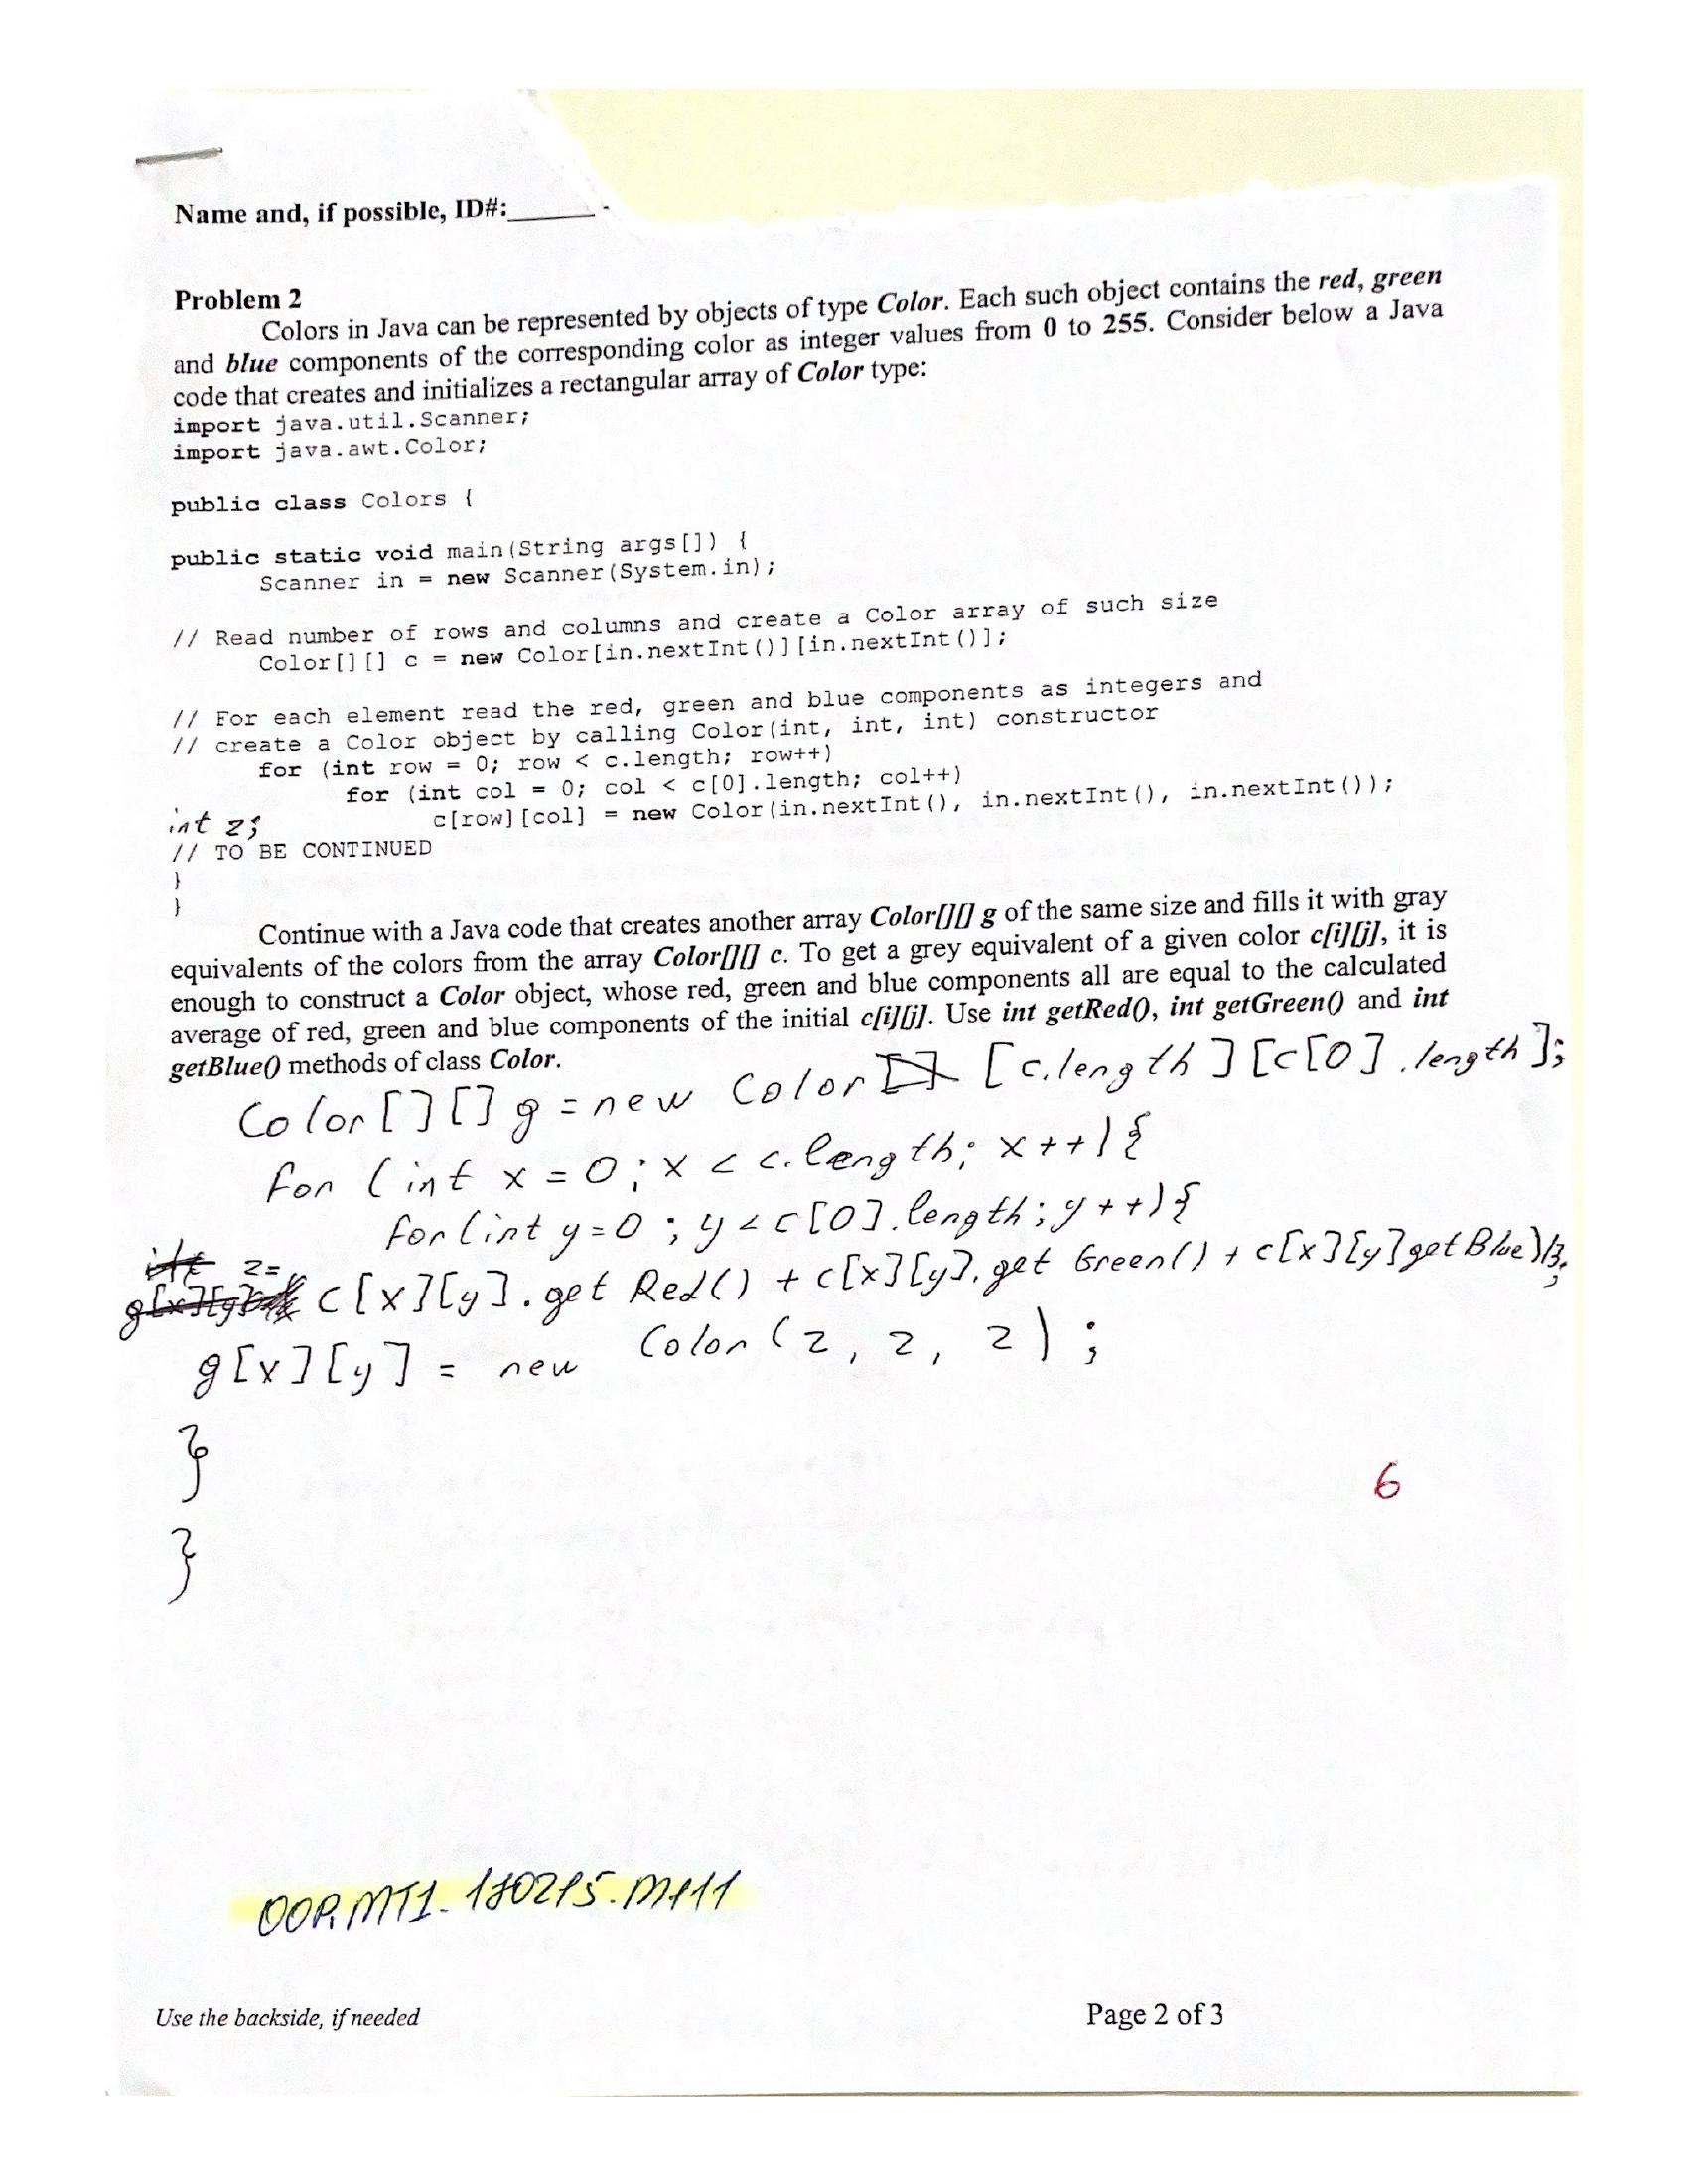 Name and, if possible, ID#:
Problem 2
Colors in Java can be represented by objects of type Color. Each such object contains the red, green
and blue components of the corresponding color as integer values from 0 to 255. Consider below a Java
code that creates and initializes a rectangular array of Color type:
import java.util.Scanner;
import java.awt.Color;
public class Colors {
public static void main(String args[]) {
Scanner in = new Scanner(System.in);
// Read number of rows and columns and create a Color array of such size
Color[][] c = new Color[in.nextInt()][in.nextInt()];
// For each element read the red, green and blue components as integers and
// create a Color object by calling Color(int, int, int) constructor
for (int row = 0; row < c.length; row++)
for (int col = 0; col < c[0].length; col++)
c[row][col] = new Color(in.nextInt(), in.nextInt(), in.nextInt());
int z;
// TO BE CONTINUED
}
}
Continue with a Java code that creates another array Color[][] g of the same size and fills it with gray
equivalents of the colors from the array Color[][] c. To get a grey equivalent of a given color c[i][j], it is
enough to construct a Color object, whose red, green and blue components all are equal to the calculated
average of red, green and blue components of the initial c[i][j]. Use int getRed(), int getGreen() and int
getBlue() methods of class Color.
Color[][] g = new Color [c.length][c[0].length];
for (int x = 0; x < c.length; x++) {
for (int y = 0; y < c[0].length; y++) {
z= c[x][y].get Red() + c[x][y].get Green() + c[x][y]getBlue)/3;
g[x][y] = new Color(z, z, z);
}
6
}
Use the backside, if needed
Page 2 of 3